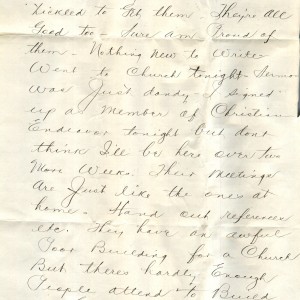 Tickled to Get them They're All
Good too - Sure am Proud of
them - Nothing New to Write
Went to Church tonight - Sermon
was Just dandy - I signed
up a Member of Christian
Endeavor tonight but dont
think I'll be here over two
More Weeks. Their Meetings
Are Just like the ones at
home. Hand out references
etc. They have an awful
Poor Building for a Church
But theres hardly Enough
People attend to Build